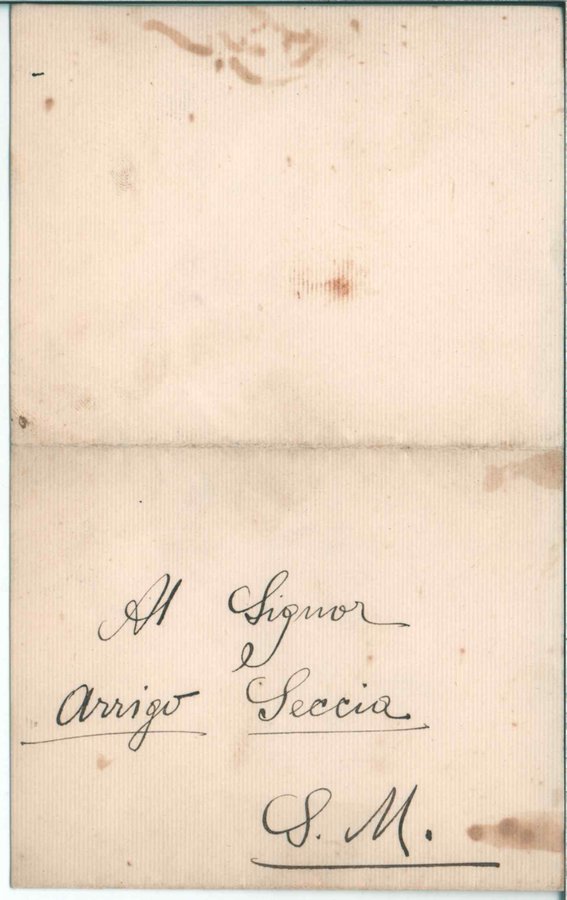 Al Signor
Arrigo Seccia
S. M.